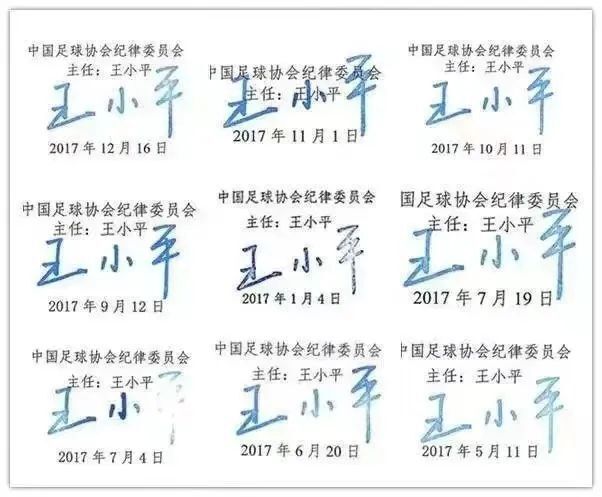 中国足球协会纪律委员会
主任：王小平
王小平
2017 年 12 月 16 日
中国足球协会纪律委员会
主任：王小平
王小平
2017 年 11 月 1 日
中国足球协会纪律委员会
主任：王小平
王小平
2017 年 10 月 11 日
中国足球协会纪律委员会
主任：王小平
王小平
2017 年 9 月 12 日
中国足球协会纪律委员会
主任：王小平
王小平
2017 年 1 月 4 日
国足球协会纪律委员会
主任：王小平
王小平
2017 年 7 月 19 日
中国足球协会纪律委员会
主任：王小平
王小平
2017 年 7 月 4 日
中国足球协会纪律委员会
主任：王小平
王小平
2017 年 6 月 20 日
中国足球协会纪律委员会
主任：王小平
王小平
2017 年 5 月 11 日